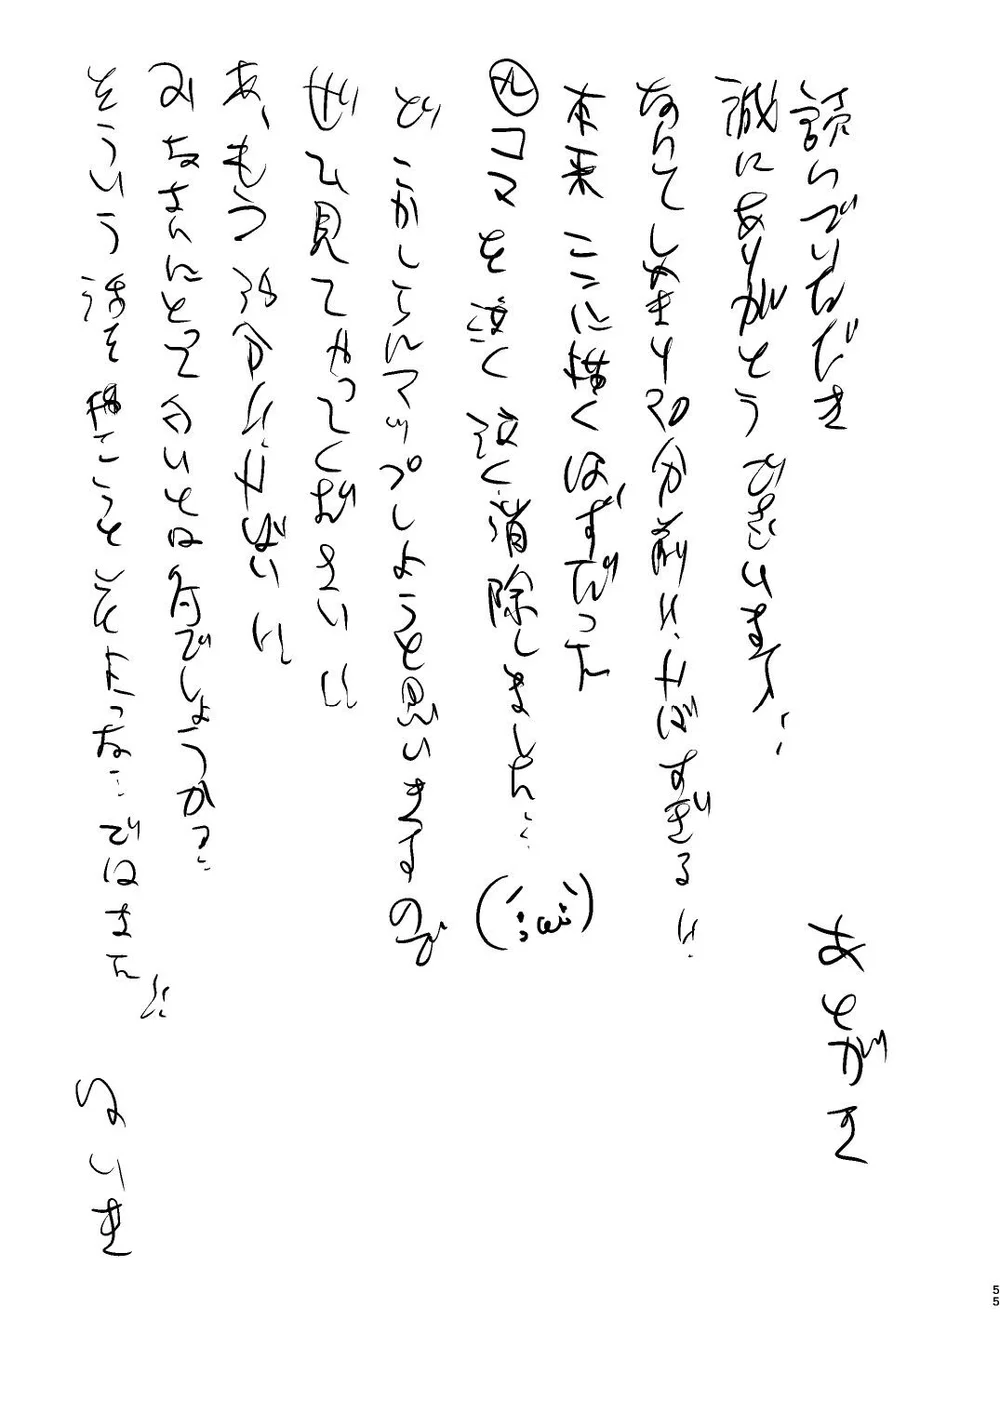 あとがき
読んでいただき
誠にありがとうございます!!
なんてしめきり30分前!!ヤバすぎる!!
本来ここに描くはずだった
コマを泣く泣く消除しました…
どこかしらにマップしようと思いますので
ぜひ見てやってください!!
あ、もう 分!!ヤバい!!
みなさんにとって いとは何でしょうか?
そういう話を描こうと よったな…ではまた!!
55